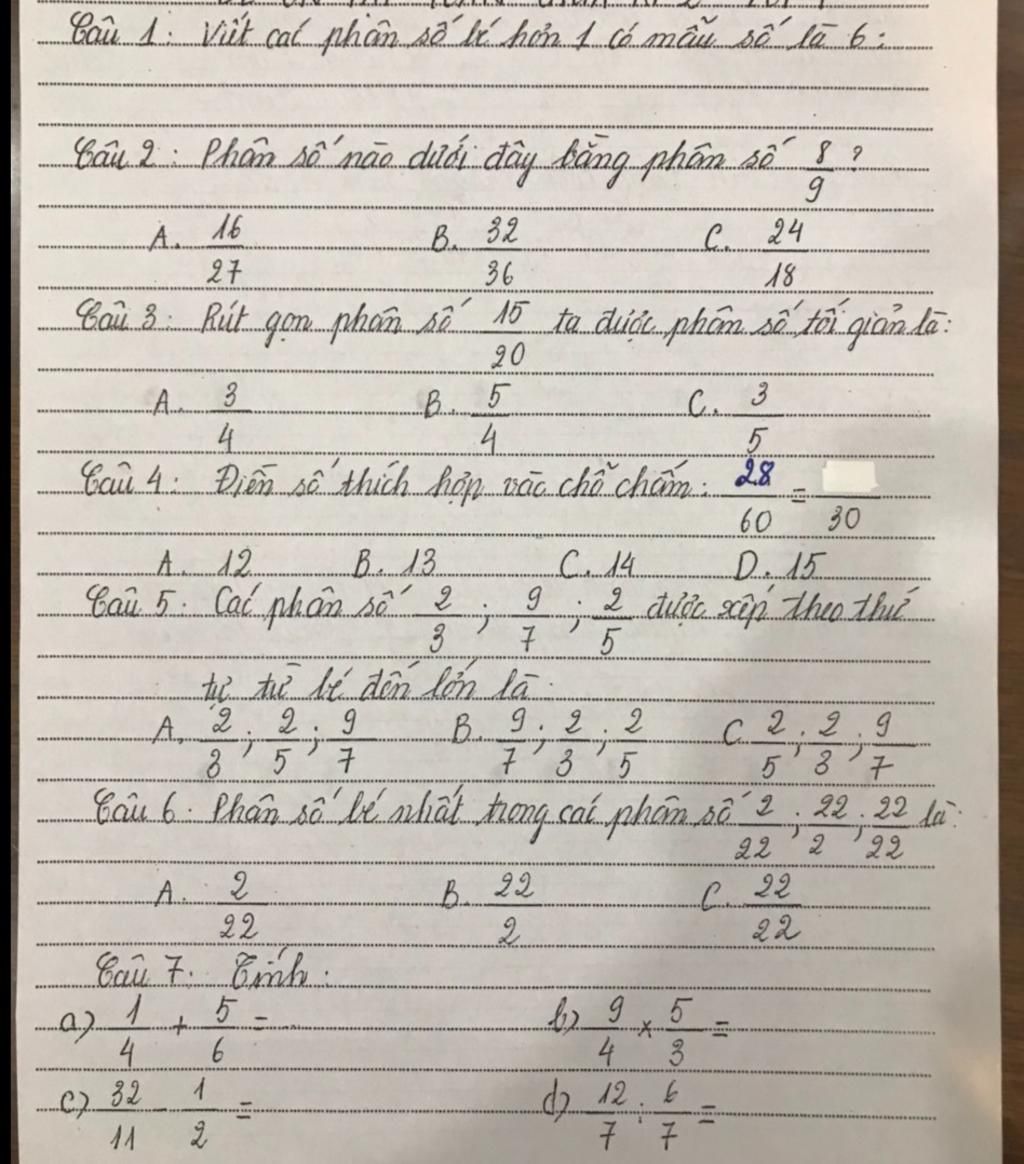 Câu 1: Viết các phân số bé hơn 1 có mẫu số là 6:
Câu 2: Phân số nào dưới đây bằng phân số 8/9 ?
A. 16/27 B. 32/36 C. 24/18
Câu 3: Rút gọn phân số 15/20 ta được phân số tối giản là:
A. 3/4 B. 5/4 C. 3/5
Câu 4: Điền số thích hợp vào chỗ chấm: 28/60 = /30
A. 12 B. 13 C. 14 D. 15
Câu 5: Các phân số 2/3 ; 9/7 ; 2/5 được xếp theo thứ
tự từ bé đến lớn là:
A. 2/3 ; 2/5 ; 9/7 B. 9/7 ; 2/3 ; 2/5 C. 2/5 ; 2/3 ; 9/7
Câu 6: Phân số bé nhất trong các phân số 2/22 ; 22/2 ; 22/22 là:
A. 2/22 B. 22/2 C. 22/22
Câu 7: Tính:
a) 1/4 + 5/6 = b) 9/4 × 5/3 =
c) 32/11 - 1/2 = d) 12/7 : 6/7 =